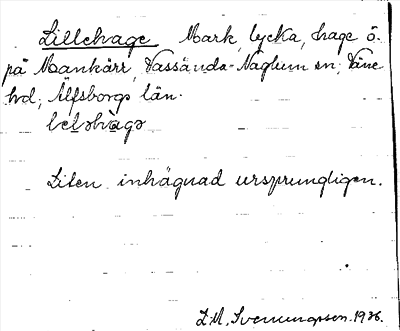 Lillehage Mark, lycka, hage ö.
på Mankärr, Vassända-Naglum sn; Väne
hd; Älfsborgs län.
Liten inhägnad ursprungligen.
1926.